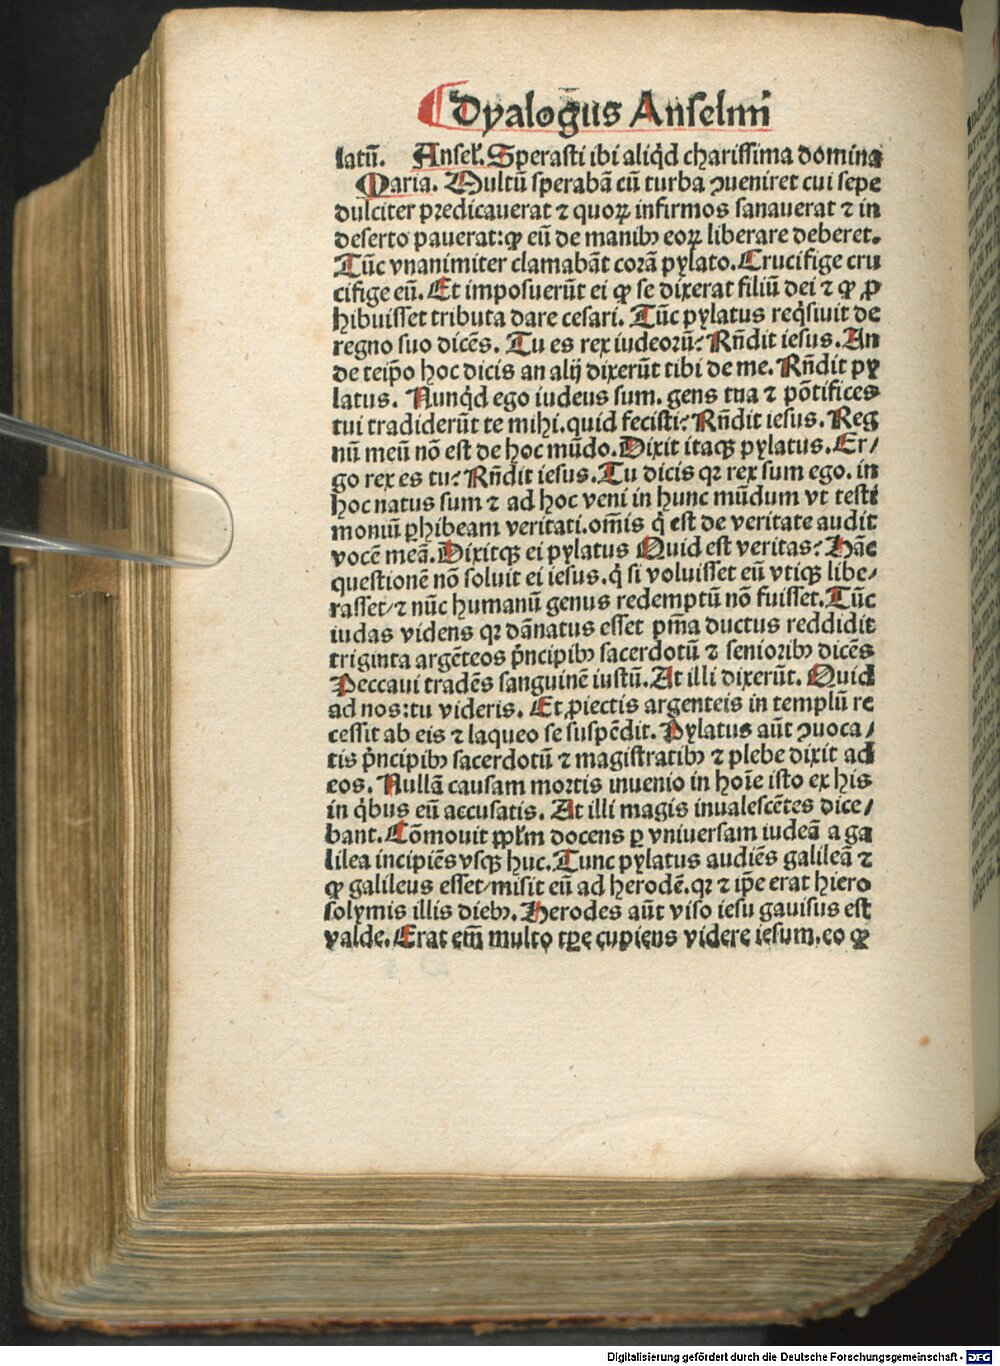 Dyalogus Anselmi
latū. Anseł. Sperasti ibi aliq̇d charissima domina
Maria. Multū sperabā cū turba ꝯueniret cui sepe
dulciter predicauerat ⁊ quoꝝ infirmos sanauerat ⁊ in
deserto pauerat: ꝙ eū de manibꝰ eoꝝ liberare deberet.
Tūc vnanimiter clamabāt corā pylato. Crucifige cru
cifige eū. Et imposuerūt ei ꝙ se dixerat filiū dei ⁊ ꝙ ꝓ
hibuisset tributa dare cesari. Tūc pylatus req̇siuit de
regno suo dicēs. Tu es rex iudeorū? Rñdit iesus. An
de teip̄o hoc dicis an alij dixerūt tibi de me. Rñdit py
latus. Nunq̇d ego iudeus sum. gens tua ⁊ pōtifices
tui tradiderūt te mihi. quid fecisti? Rñdit iesus. Reg
nū meū nō est de hoc mūdo. Dixit itaqꝫ pylatus. Er/
go rex es tu? Rñdit iesus. Tu dicis qꝛ rex sum ego. in
hoc natus sum ⁊ ad hoc veni in hunc mūdum vt testi
moniū ꝑhibeam veritati. om̄is q̇ est de veritate audit
vocē meā. Dixitqꝫ ei pylatus Quid est veritas? Hāc
questionē nō soluit ei iesus. q̇ si voluisset eū vtiqꝫ libe/
rasset/ ⁊ nūc humanū genus redemptū nō fuisset. Tūc
iudas videns qꝛ dānatus esset pm̄a ductus reddidit
triginta argēteos pṅcipibꝰ sacerdotū ⁊ senioribꝰ dicēs
Peccaui tradēs sanguinē iustū. At illi dixerūt. Quid
ad nos: tu videris. Et ꝓiectis argenteis in templū re
cessit ab eis ⁊ laqueo se suspēdit. Pylatus aūt ꝯuoca/
tis pṅcipibꝰ sacerdotū ⁊ magistratibꝰ ⁊ plebe dixit ad
eos. Nullā causam mortis inuenio in hoīe isto ex his
in q̇bus eū accusatis. At illi magis inualescētes dice/
bant. Cōmouit pp̄łm docens ꝑ vniuersam iudeā a ga
lilea incipiēs vsqꝫ huc. Tunc pylatus audiēs galileā ⁊
ꝙ galileus esset/ misit eū ad herodē. qꝛ ⁊ ip̄e erat hiero
solymis illis diebꝰ. Herodes aūt viso iesu gauisus est
valde. Erat em̄ multo tp̄e cupiens videre iesum. eo ꝙ
Digitalisierung gefördert durch die Deutsche Forschungsgemeinschaft - DFG